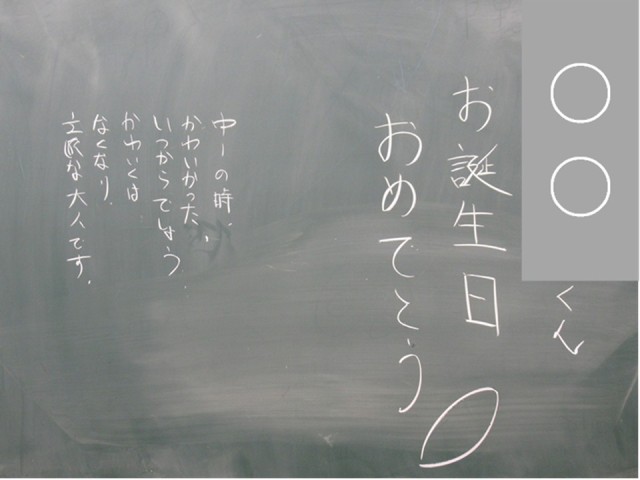 ○○くん
お誕生日
おめでとう
中一の時、
かわいかった、
いつからでしょう。
かわいくは
なくなり、
立派な大人です。